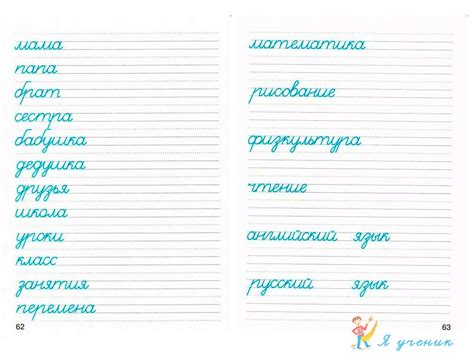 мама
папа
брат
сестра
бабушка
дедушка
друзья
школа
уроки
класс
занятия
перемена
62
математика
рисование
физкультура
чтение
английский язык
русский язык
63
Я ученик